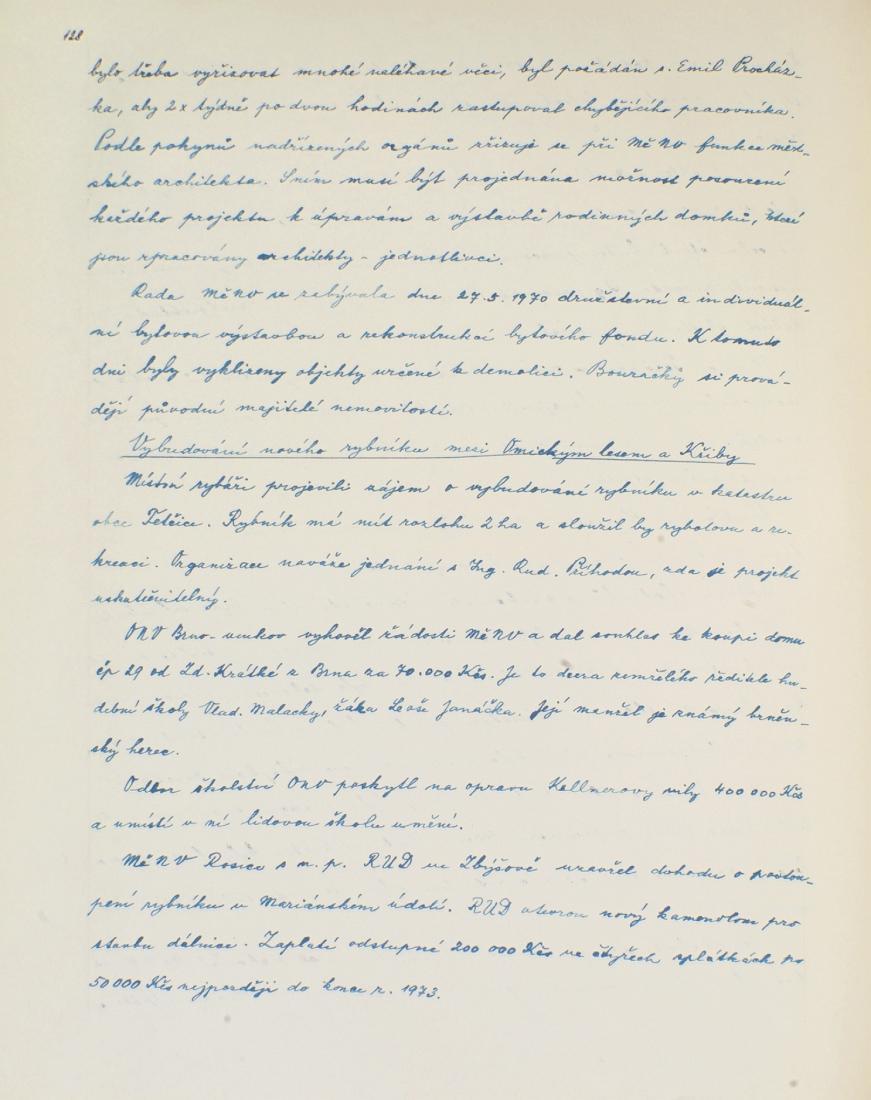 128
bylo třeba vyřizovat mnohé naléhavé věci, byl požádán s. Emil Procház-
ka, aby 2x týdně po dvou hodinách zastupoval chybějícího pracovníka.
Podle pokynů nadřízených orgánů zřizuje se při MěNV funkce měst-
ského architekta. S ním musí být projednána možnost posouzení
každého projektu k úpravám a výstavbě rodinných domků, které
jsou zpracovány architekty - jednotlivci.
Rada MěNV se zabývala dne 27.5. 1970 družstevní a individuál-
ní bytovou výstavbou a rekonstrukcí bytového fondu. K tomuto
dni byly vyklizeny objekty určené k demolici. Bouračky si prová-
dějí původní majitelé nemovitostí.
Vybudování nového rybníku mezi Omickým lesem a Křiby
Místní rybáři projevili zájem o vybudování rybníku v katastru
obce Tetčice. Rybník má mít rozlohu 2 ha a sloužil by rybolovu a re-
kreaci. Organizace naváže jednání s Ing. Rud. Příhodou, zda je projekt
uskutečnitelný.
ONV Brno-venkov vyhověl žádosti MěNV a dal souhlas ke koupi domu
čp 29 od Zd. Krátké z Brna za 70.000 Kčs. Je to dcera zemřelého ředitele hu-
dební školy Vlad. Malacky, žáka Leoše Janáčka. Její manžel je známý brněn-
ský herec.
Odbor školství ONV poskytl na opravu Kellnerovy vily 400 000 Kčs
a umístí v ní lidovou školu umění.
MěNV Rosice s n. p. RUD ve Zbýšově uzavřel dohodu o postou-
pení rybníku v Mariánském údolí. RUD otevrou nový kamenolom pro
stavbu dálnice. Zaplatí odstupné 200 000 Kčs ve čtyřech splátkách po
50 000 Kčs nejpozději do konce r. 1973.